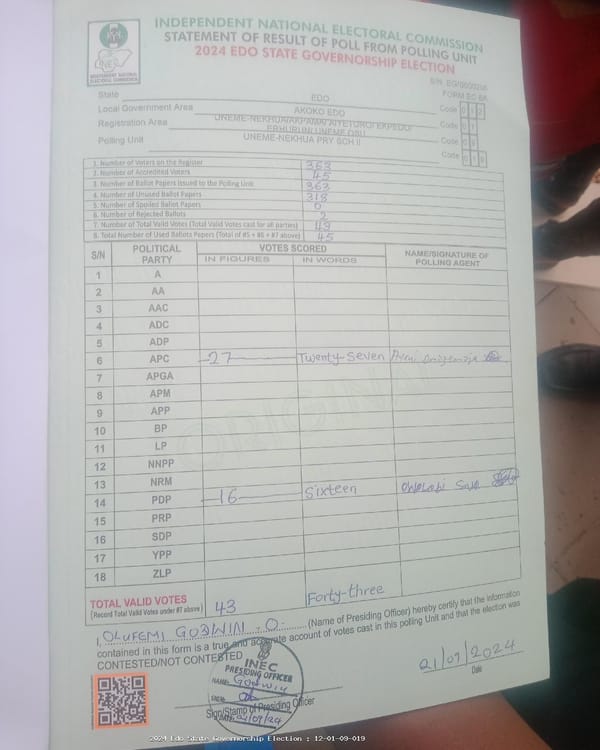 INDEPENDENT NATIONAL ELECTORAL COMMISSION
STATEMENT OF RESULT OF POLL FROM POLLING UNIT
2024 EDO STATE GOVERNORSHIP ELECTION
INEC
INDEPENDENT NATIONAL ELECTORAL COMMISSION
FORM EC 8A
State EDO Code 1 2
Local Government Area AKOKO EDO Code 0 1
Registration Area UNEME-NEKHUA/AKPAMA/AIYETORO/EKPEDO/ERHURUN/UNEME OSU Code 0 9
Polling Unit UNEME-NEKHUA PRY SCH II Code 0 1 9
1. Number of Voters on the Register 363
2. Number of Accredited Voters 45
3. Number of Ballot Papers Issued to the Polling Unit 363
4. Number of Unused Ballot Papers 318
5. Number of Spoiled Ballot Papers 0
6. Number of Rejected Ballots 2
7. Number of Total Valid Votes (Total Valid Votes cast for all parties) 43
8. Total Number of Used Ballots Papers (Total of #5 + #6 + #7 above) 45
S/N POLITICAL PARTY VOTES SCORED NAME/SIGNATURE OF POLLING AGENT
IN FIGURES IN WORDS
1 A
2 AA
3 AAC
4 ADC
5 ADP
6 APC 27 Twenty-Seven
7 APGA
8 APM
9 APP
10 BP
11 LP
12 NNPP
13 NRM
14 PDP 16 Sixteen
15 PRP
16 SDP
17 YPP
18 ZLP
ORIGINAL
TOTAL VALID VOTES 43 Forty-three
(Record Total Valid Votes under #7 above)
I, OLUFEMI GODWIN .O. (Name of Presiding Officer) hereby certify that the information
contained in this form is a true and accurate account of votes cast in this polling Unit and that the election was
CONTESTED/NOT CONTESTED
INEC
PRESIDING OFFICER
NAME: Godwin
SIGN:
DATE: 21/09/24
Sign/Stamp of Presiding Officer
21/09/2024
Date
2024 Edo State Governorship Election : 12-01-09-019